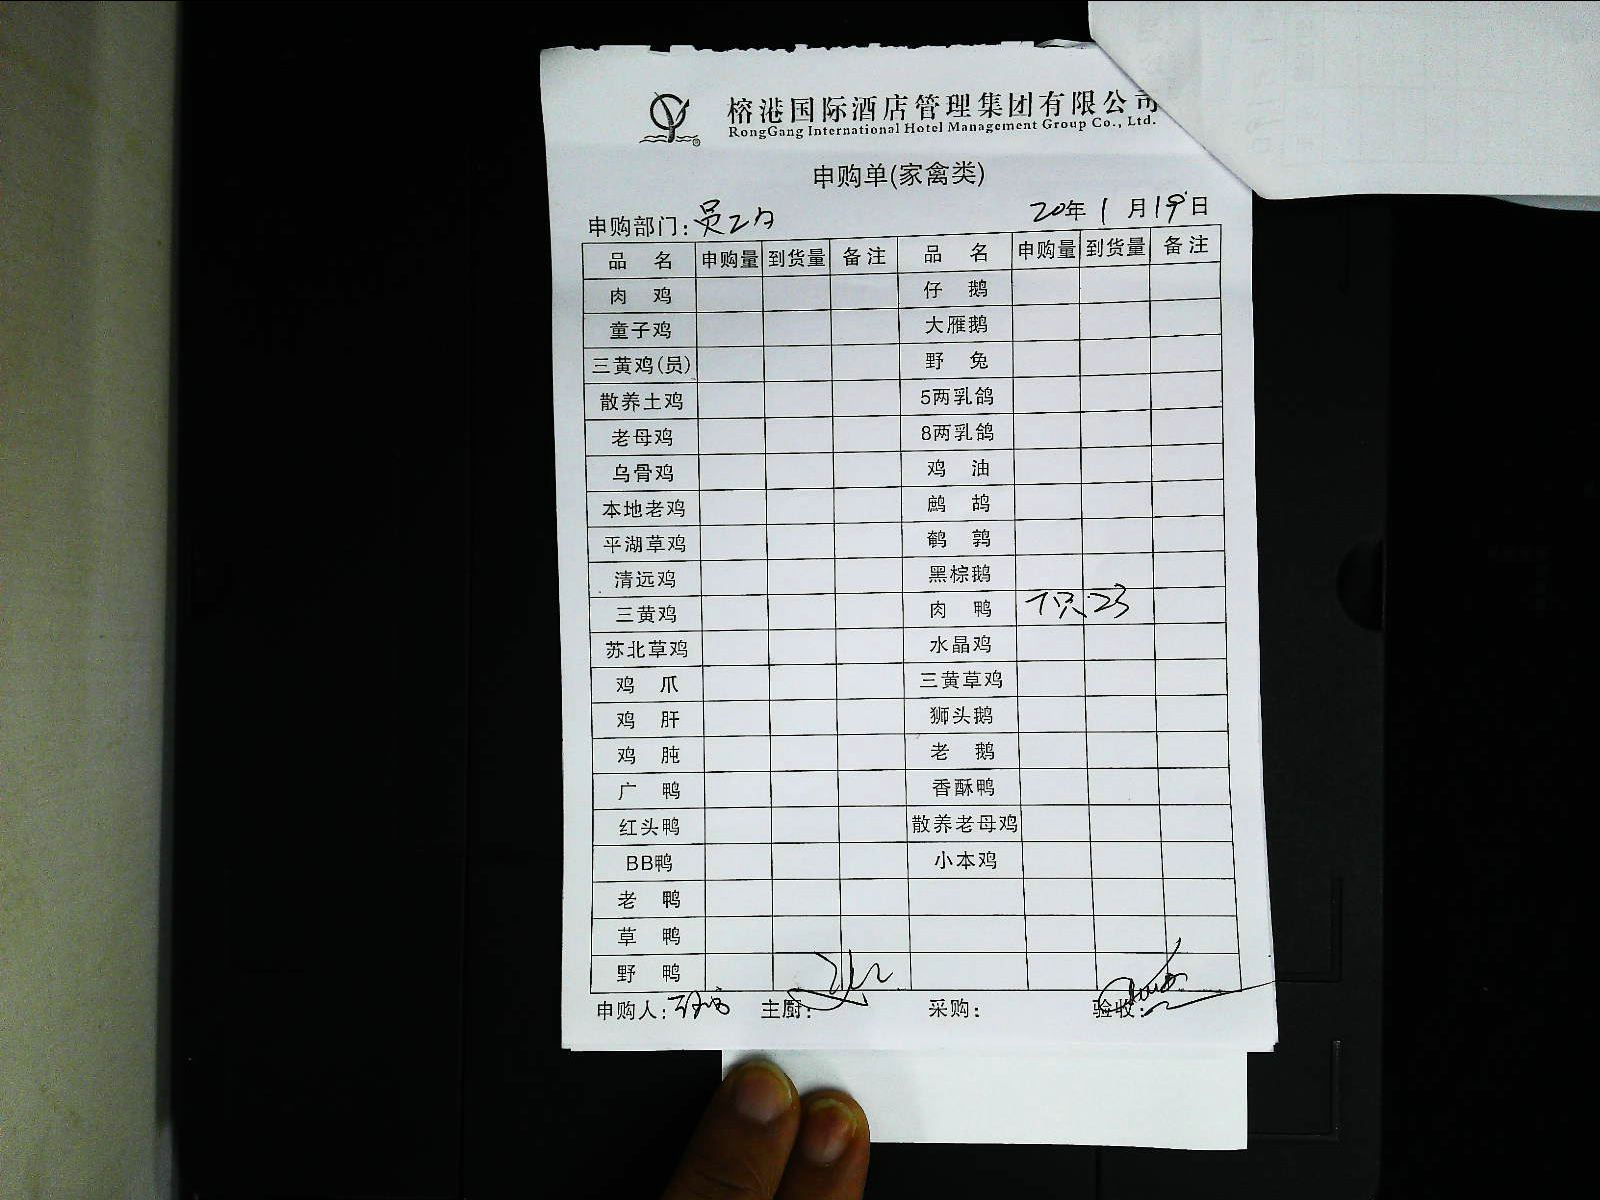 榕港国际酒店管理集团有限公司
RongGang International Hotel Management Group Co., Ltd.
申购单(家禽类)
申购部门: 20年 1 月 19 日
品 名 申购量 到货量 备注 品 名 申购量 到货量 备注
肉 鸡 仔 鹅
童子鸡 大雁鹅
三黄鸡(员) 野 兔
散养土鸡 5两乳鸽
老母鸡 8两乳鸽
乌骨鸡 鸡 油
本地老鸡 鹧 鸪
平湖草鸡 鹌 鹑
清远鸡 黑棕鹅
三黄鸡 肉 鸭 7只 23
苏北草鸡 水晶鸡
鸡 爪 三黄草鸡
鸡 肝 狮头鹅
鸡 肫 老 鹅
广 鸭 香酥鸭
红头鸭 散养老母鸡
BB鸭 小本鸡
老 鸭
草 鸭
野 鸭
申购人: 主厨: 采购: 验收: